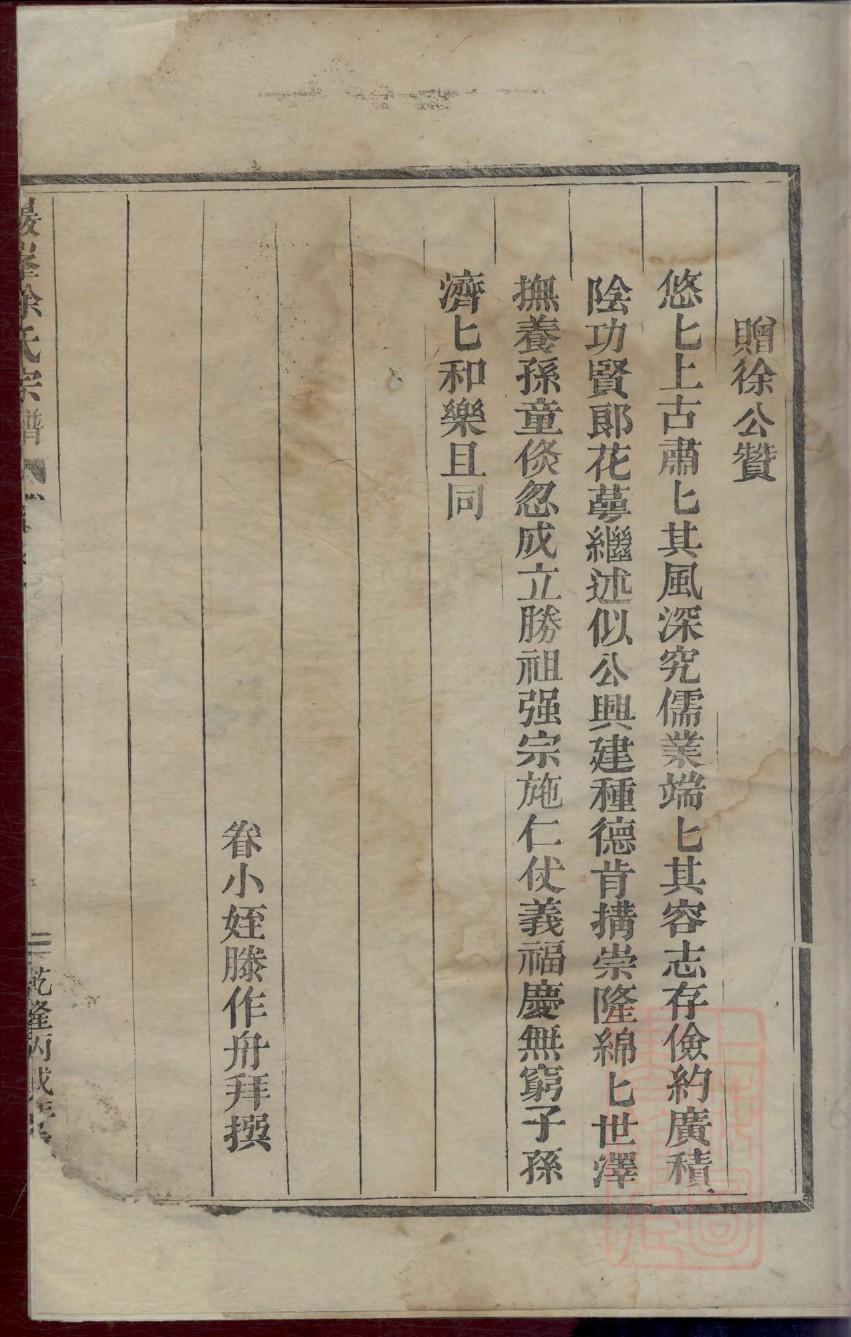 贈徐公贊
悠匕上古肅匕其風深究儒業端匕其容志存儉約廣積
陰功賢郞花萼繼述似公興建種德肯搆崇隆綿匕世澤
撫養孫童倐忽成立勝祖强宗施仁仗義福慶無窮子孫
濟匕和樂且同
眷小姪滕作舟拜撰
峯徐氏宗譜
乾隆丙戌